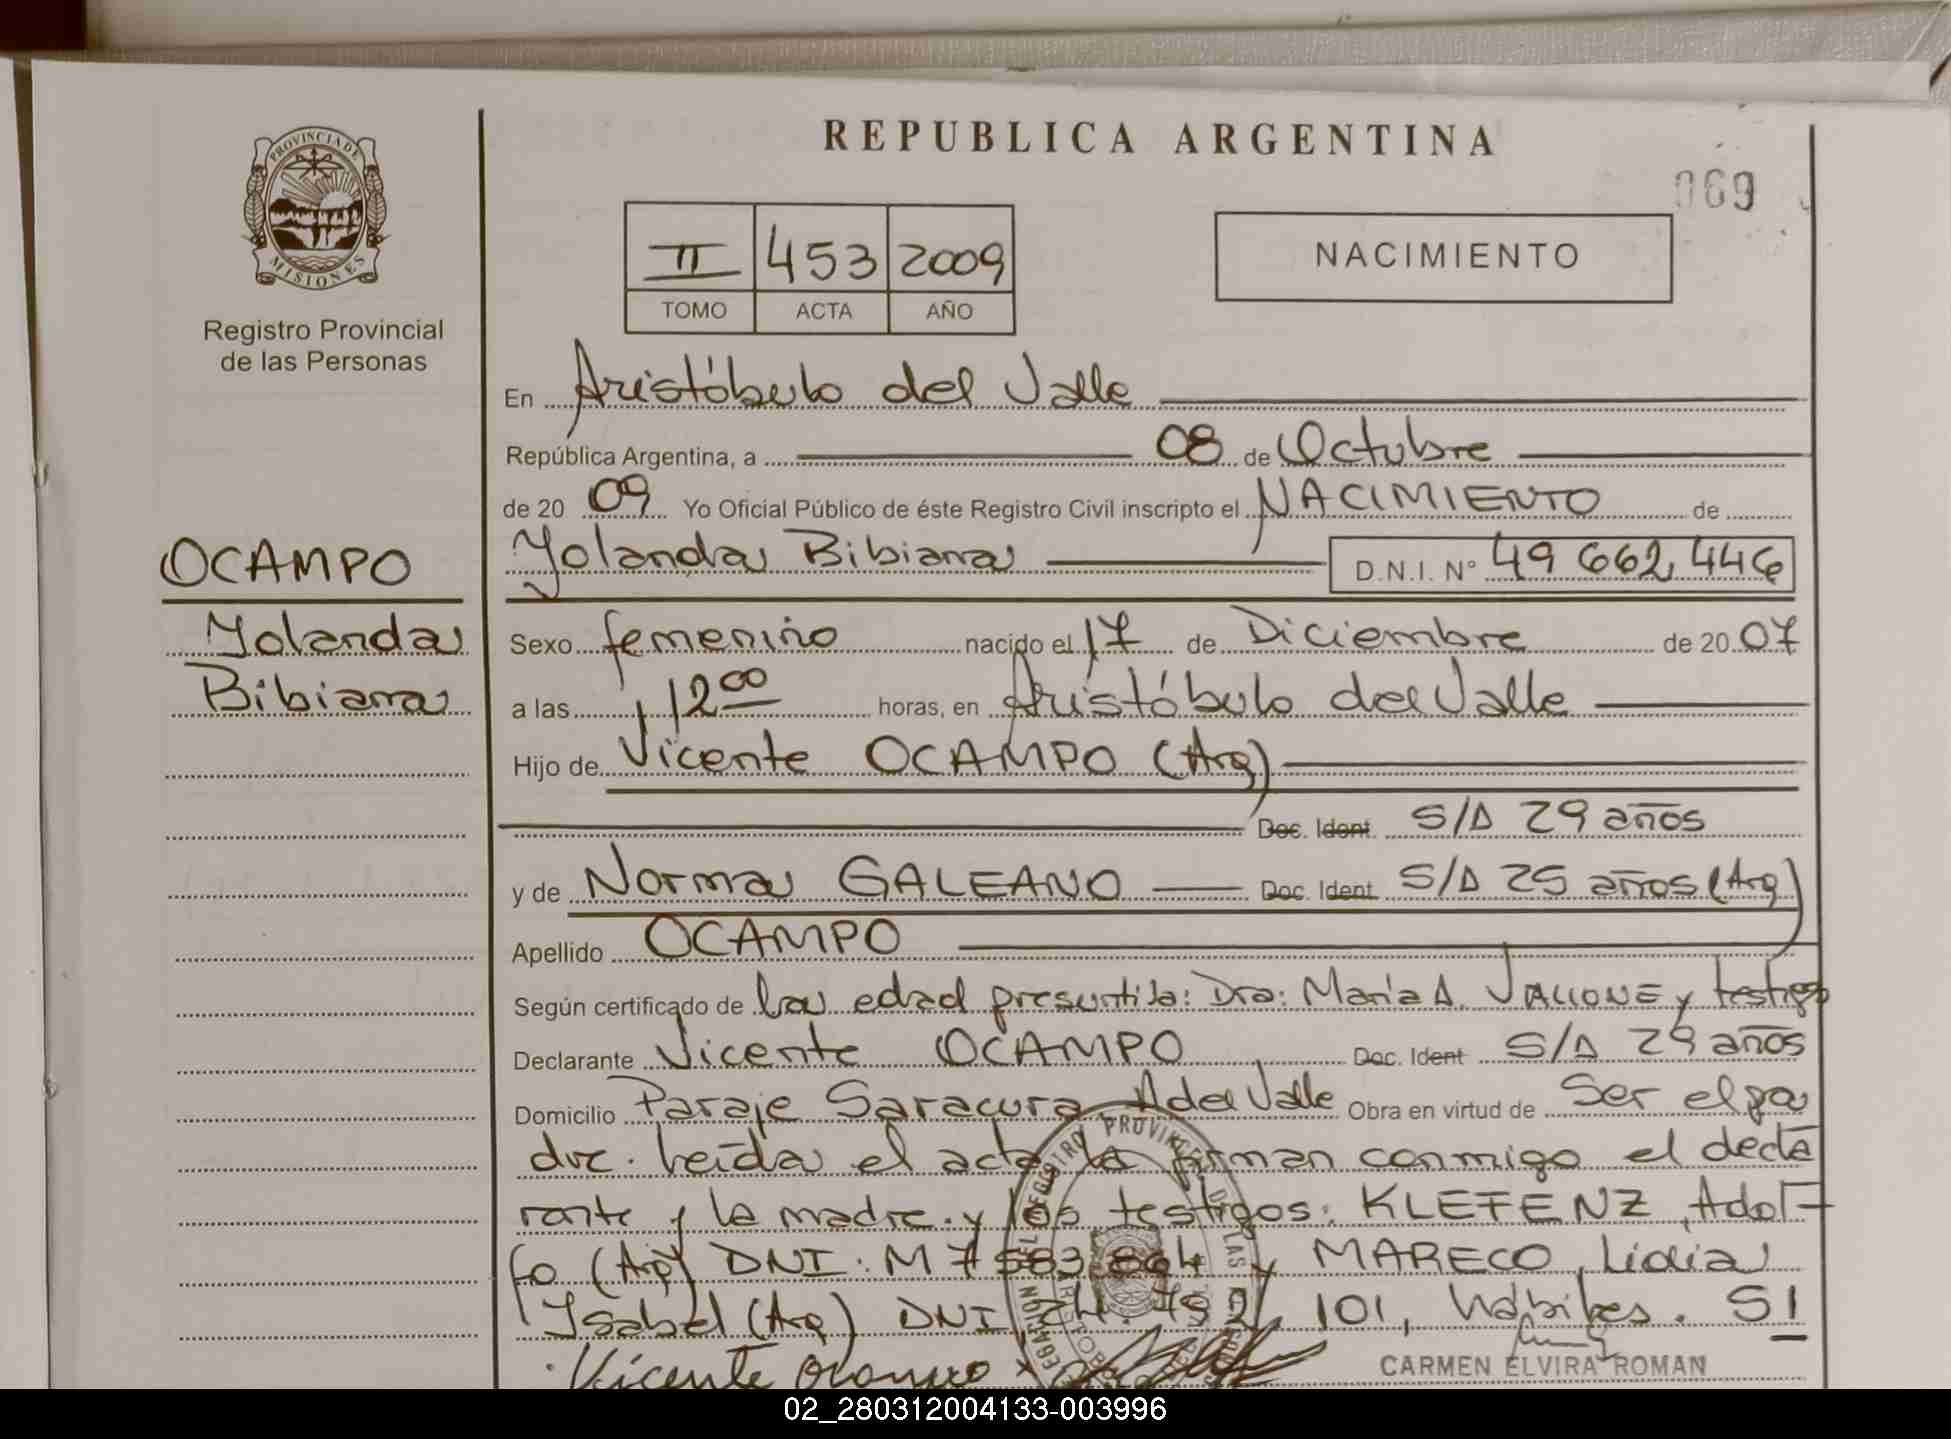 REPUBLICA ARGENTINA
069
PROVINCIA DE
MISIONES
Registro Provincial
de las Personas
II 453 2009
TOMO ACTA AÑO
NACIMIENTO
En Aristóbulo del Valle
República Argentina, a 08 de Octubre
de 20 09 Yo Oficial Público de éste Registro Civil inscripto el NACIMIENTO de
Yolanda Bibiana D.N.I. N° 49 662 446
OCAMPO
Yolanda
Bibiana
Sexo femenino nacido el 17 de Diciembre de 20 07
a las 12 00 horas, en Aristóbulo del Valle
Hijo de Vicente OCAMPO (Arg)
Doc. Ident. S/D 29 años
y de Norma GALEANO Doc. Ident S/D 25 años (Arg)
Apellido OCAMPO
Según certificado de la edad presuntiva: Dra: María A. y testigos
Declarante Vicente OCAMPO Doc. Ident S/D 29 años
Domicilio Paraje Saracura A del Valle Obra en virtud de Ser el pa
dre. Leída el acta, la firman conmigo el decla
rante y la madre. y los testigos: KLEFENZ, Adol-
fo (Arg) DNI: M 7 583.864 y MARECO, Lidia
Ysabel (Arg) DNI 24.792.101, hábiles. S1
Vicente Ocampo
CARMEN ELVIRA ROMAN
02_280312004133-003996